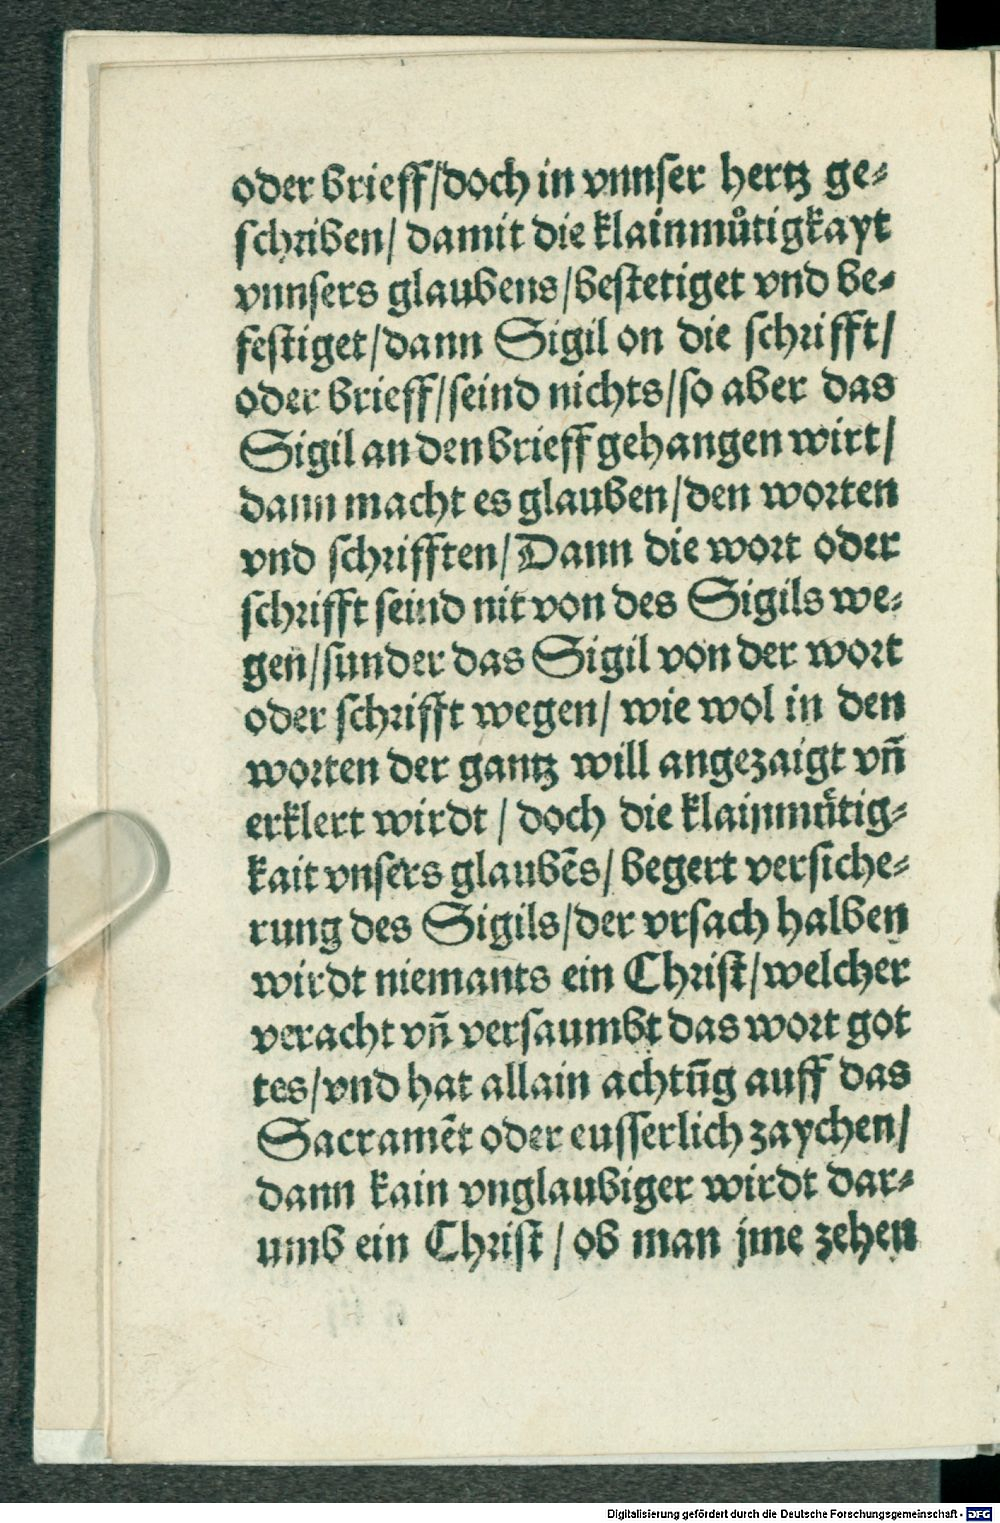 oder brieff/doch in vnnser hertz ge⸗
schriben/ damit die klainmuͦtigkayt
vnnsers glaubens/bestetiget vnd be⸗
festiget/dann Sigil on die schrifft/
oder brieff/seind nichts/so aber das
Sigil an den brieff gehangen wirt/
dann macht es glauben/den worten
vnd schrifften/Dann die wort oder
schrifft seind nit von des Sigils we⸗
gen/sunder das Sigil von der wort
oder schrifft wegen/ wie wol in den
worten der gantz will angezaigt vn̄
erklert wirdt / doch die klainmuͤtig⸗
kait vnsers glaubēs/ begert versiche⸗
rung des Sigils/der vrsach halben
wirdt niemants ein Christ/welcher
veracht vn̄ versaumbt das wort got
tes/vnd hat allain achtūg auff das
Sacramēt oder eusserlich zaychen/
dann kain vnglaubiger wirdt dar⸗
umb ein Christ / ob man jme zehen
Digitalisierung gefördert durch die Deutsche Forschungsgemeinschaft - DFG